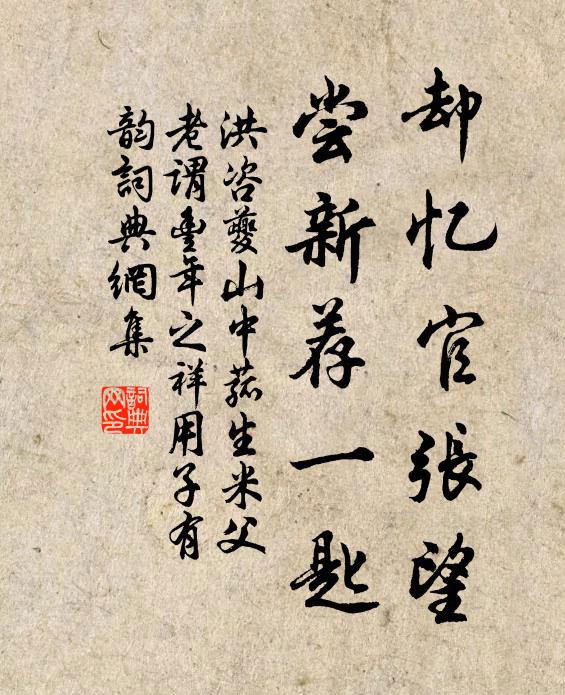 却忆官張望
尝新荐一匙
洪咨夔山中菰生米父
老谓豊年之祥用子有
韵詞典網集
詞典
网印